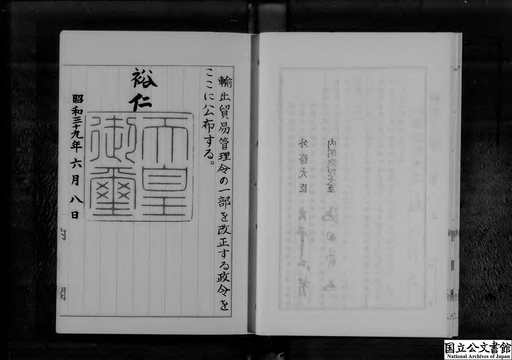 輸出貿易管理令の一部を改正する政令を
ここに公布する。
裕仁
天皇
御璽
昭和三十九年六月八日
内閣
国立公文書館
National Archives of Japan